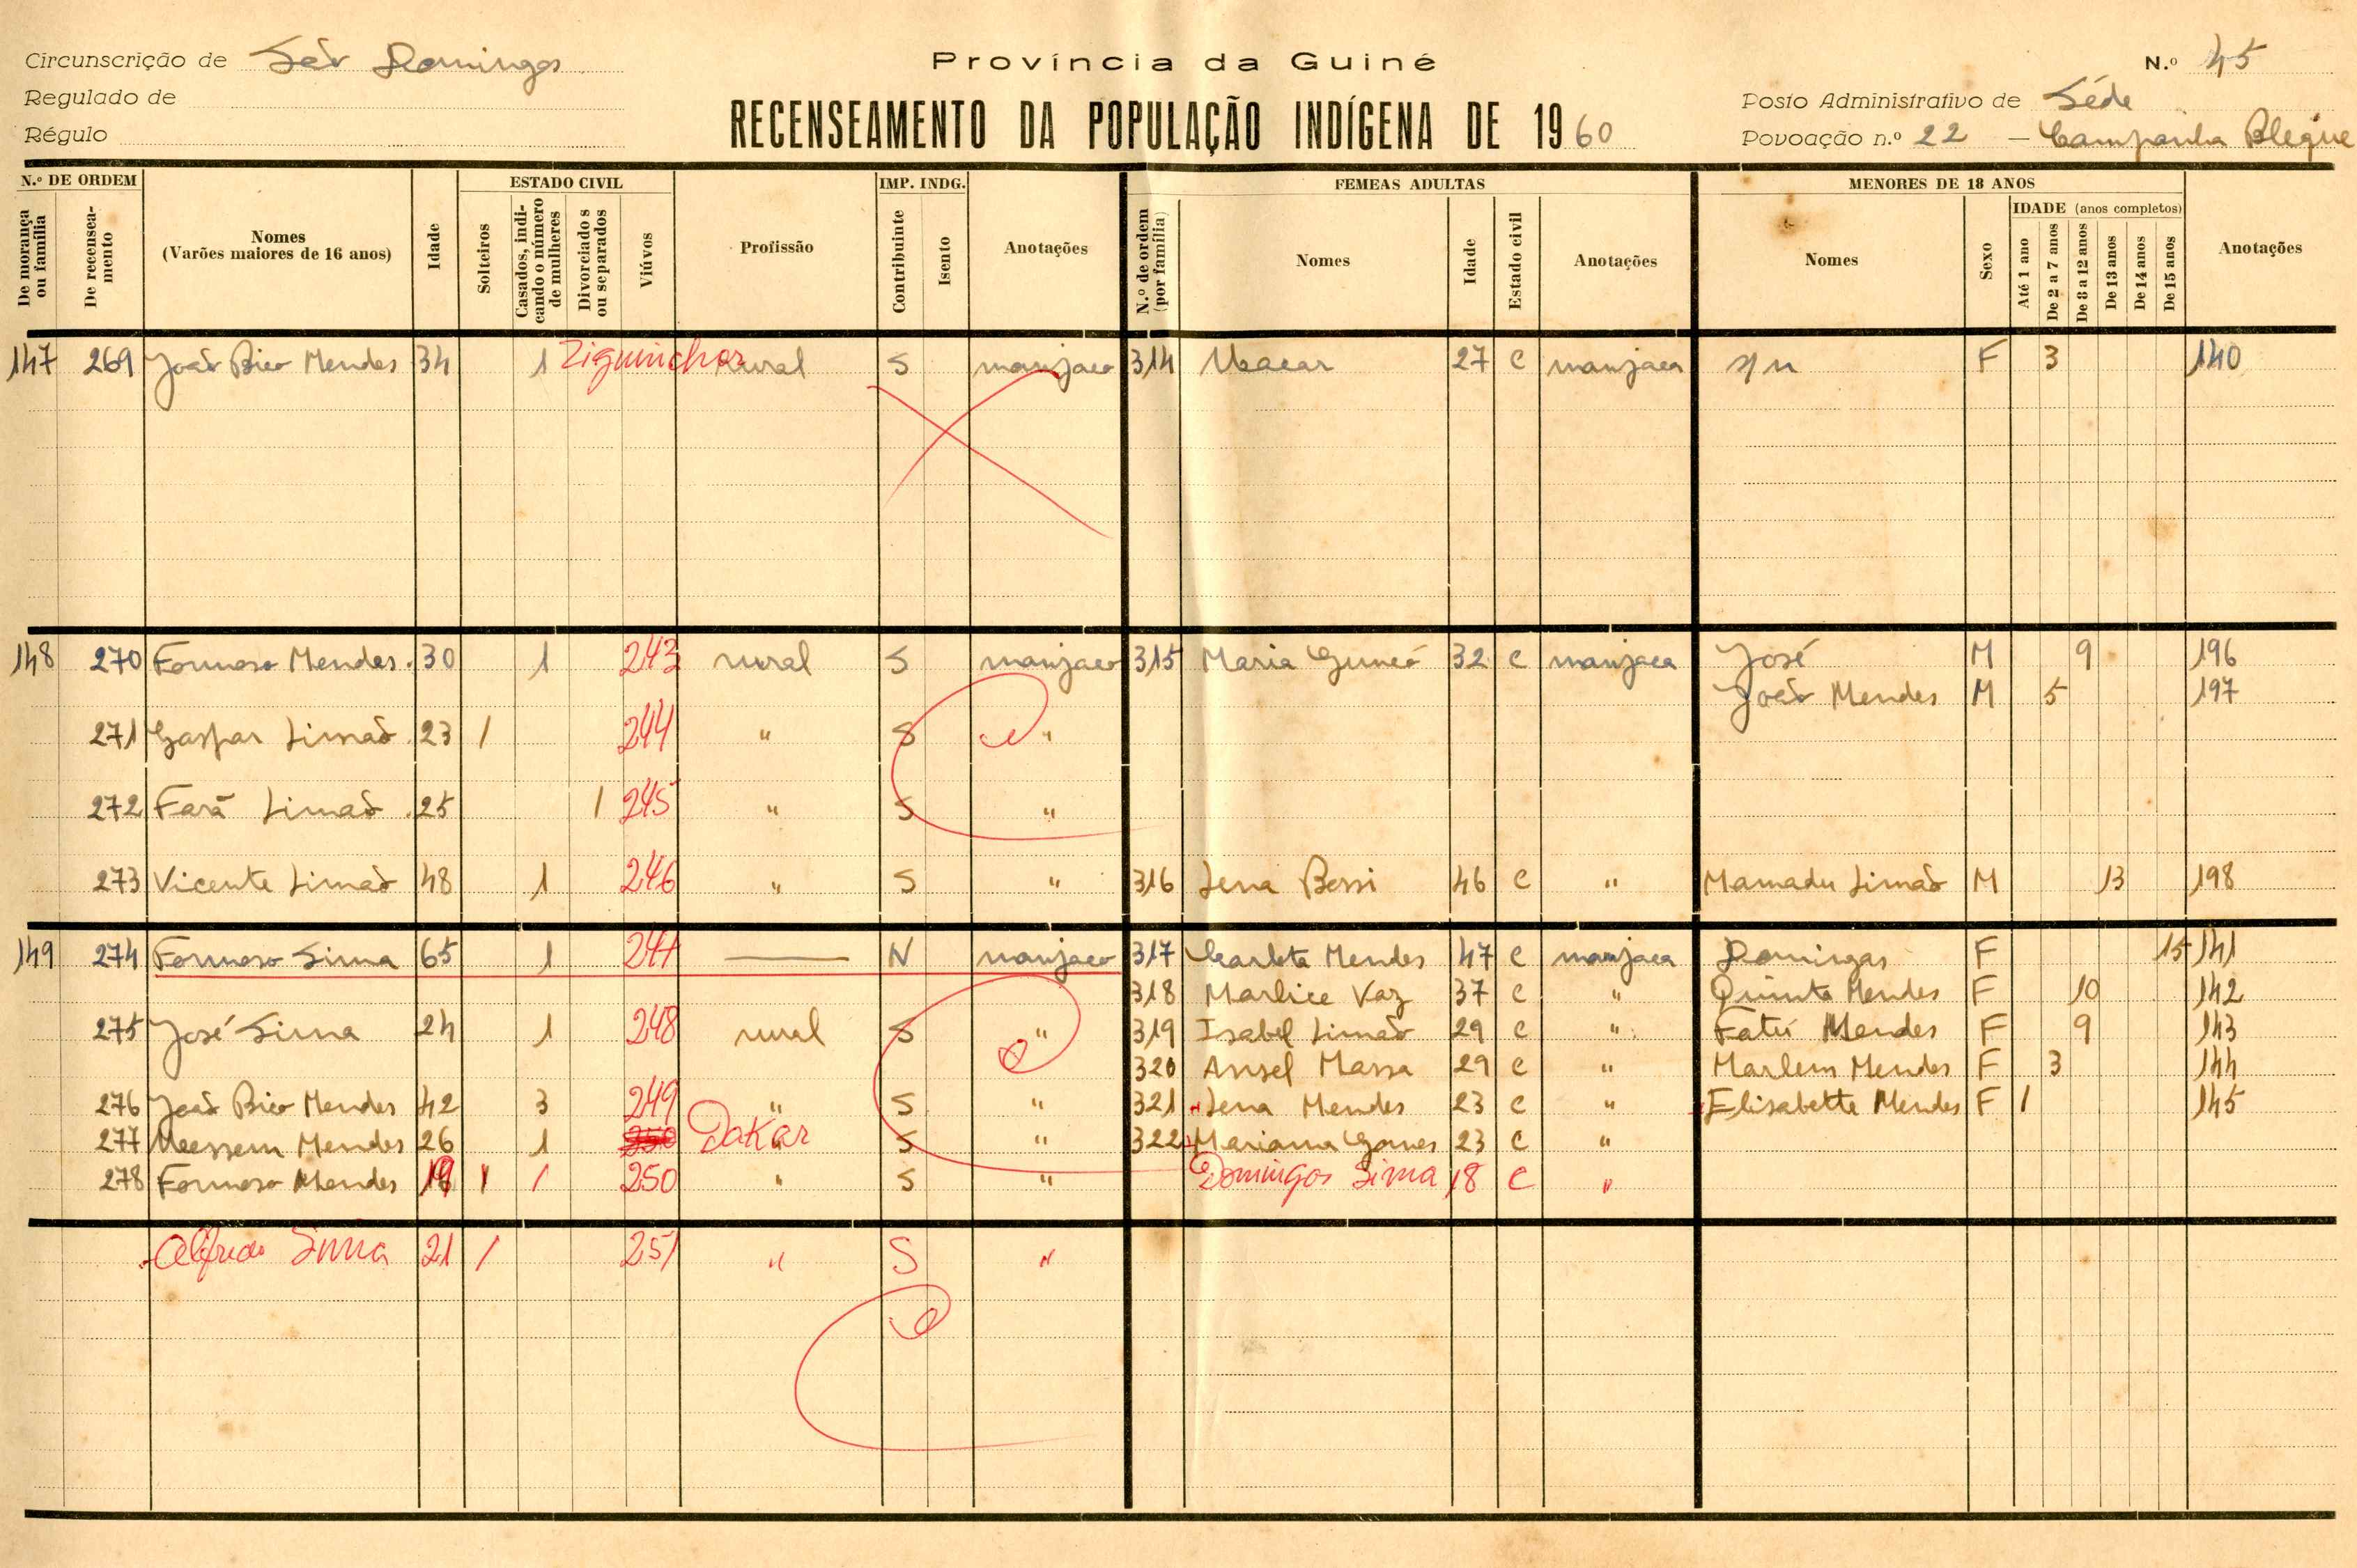 Circunscrição de São Domingos
Regulado de
Régulo
Província da Guiné
RECENSEAMENTO DA POPULAÇÃO INDÍGENA DE 1960
N.º 45
Posto Administrativo de Séde
Povoação n.º 22 — Campanha Bleque
N.º DE ORDEM
De morança ou família
De recensea-mento
Nomes
(Varões maiores de 16 anos)
Idade
ESTADO CIVIL
Solteiros
Casados, indi-cando o número de mulheres
Divorciados ou separados
Viúvos
Profissão
IMP. INDG.
Contribuinte
Isento
Anotações
FEMEAS ADULTAS
N.º de ordem (por família)
Nomes
Idade
Estado civil
Anotações
MENORES DE 18 ANOS
Nomes
Sexo
IDADE (anos completos)
Até 1 ano
De 2 a 7 anos
De 8 a 12 anos
De 13 anos
De 14 anos
De 15 anos
Anotações
147 269 João Bico Mendes 34 1 Ziguinchor rural S manjaco 314 27 C manjaca s/n F 3 140
148 270 Formoso Mendes 30 1 243 rural S manjaco 315 Maria 32 C manjaca José M 9 196
João Mendes M 5 197
271 Gaspar Limão 23 1 244 " S "
272 Fará Limão 25 1 245 " S "
273 Vicente Limão 48 1 246 " S " 316 Lena Bessi 46 C " Mamadu Limão M 13 198
149 274 Formoso Sima 65 1 247 — N manjaco 317 Carlota Mendes 47 C manjaca Domingas F 15 141
318 Marlice Vaz 37 C " Quinta Mendes F 10 142
275 José Sima 24 1 248 rural S " 319 Isabel Limão 29 C " Fatú Mendes F 9 143
320 Massa 29 C " Marlem Mendes F 3 144
276 João Bico Mendes 42 3 249 " S " 321 Lena Mendes 23 C " Elisabette Mendes F 1 145
277 Mendes 26 1 250 Dakar " S " 322 Mariama Gomes 23 C "
278 Formoso Mendes 19 1 1 250 " S " Domingos Sima 18 C "
Alfredo Sima 21 1 251 " S "